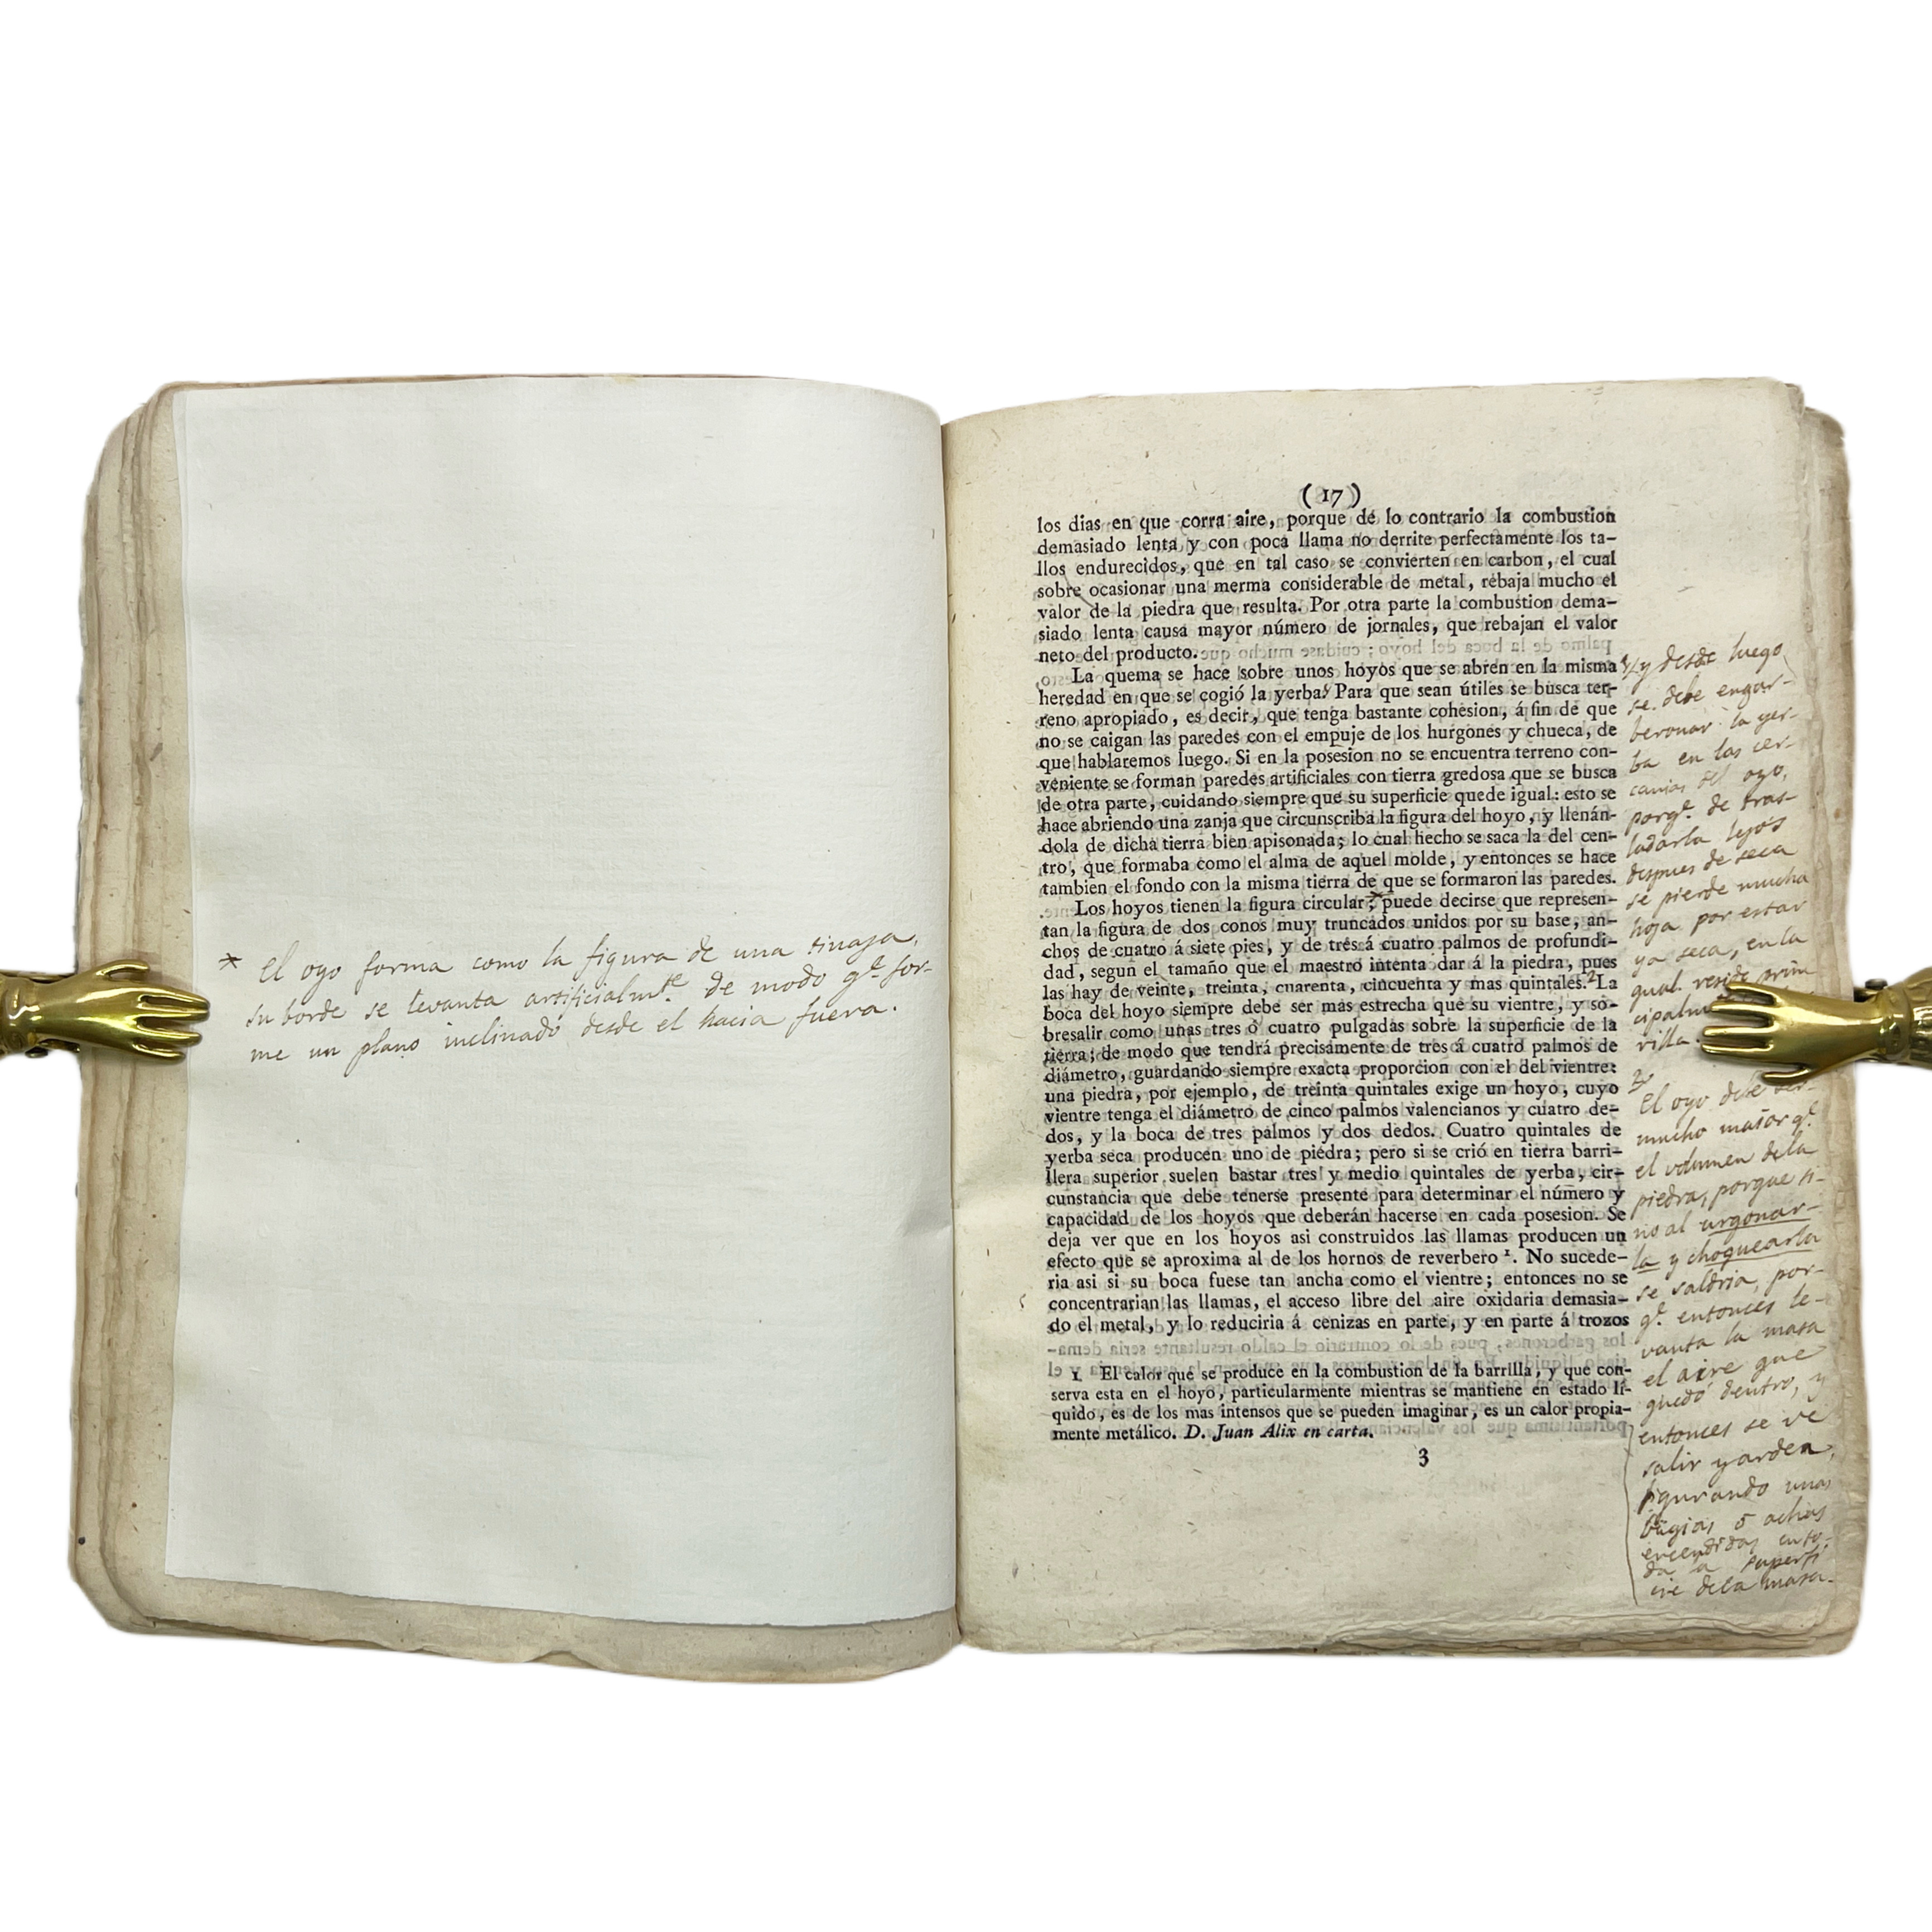 * El oyo forma como la figura de una tinaja,
su borde se levanta artificialmte. de modo qe. for-
me un plano inclinado desde el hacia fuera.
( 17 )
los dias en que corra aire, porque de lo contrario la combustion
demasiado lenta y con poca llama no derrite perfectamente los ta-
llos endurecidos, que en tal caso se convierten en carbon, el cual
sobre ocasionar una merma considerable de metal, rebaja mucho el
valor de la piedra que resulta. Por otra parte la combustion dema-
siado lenta causa mayor número de jornales, que rebajan el valor
neto del producto.
La quema se hace sobre unos hoyos que se abren en la misma
heredad en que se cogió la yerba. Para que sean útiles se busca ter-
reno apropiado, es decir, que tenga bastante cohesion, á fin de que
no se caigan las paredes con el empuje de los hurgones y chueca, de
que hablaremos luego. Si en la posesion no se encuentra terreno con-
veniente se forman paredes artificiales con tierra gredosa que se busca
de otra parte, cuidando siempre que su superficie quede igual: esto se
hace abriendo una zanja que circunscriba la figura del hoyo, y llenán-
dola de dicha tierra bien apisonada; lo cual hecho se saca la del cen-
tro, que formaba como el alma de aquel molde, y entonces se hace
tambien el fondo con la misma tierra de que se formaron las paredes.
Los hoyos tienen la figura circular; puede decirse que represen-
tan la figura de dos conos muy truncados unidos por su base, an-
chos de cuatro á siete pies, y de tres á cuatro palmos de profundi-
dad, segun el tamaño que el maestro intenta dar á la piedra, pues
las hay de veinte, treinta, cuarenta, cincuenta y mas quintales. 2 La
boca del hoyo siempre debe ser mas estrecha que su vientre, y so-
bresalir como unas tres ó cuatro pulgadas sobre la superficie de la
tierra; de modo que tendrá precisamente de tres á cuatro palmos de
diámetro, guardando siempre exacta proporcion con el del vientre:
una piedra, por ejemplo, de treinta quintales exige un hoyo, cuyo
vientre tenga el diámetro de cinco palmos valencianos y cuatro de-
dos, y la boca de tres palmos y dos dedos. Cuatro quintales de
yerba seca producen uno de piedra; pero si se crió en tierra barri-
llera superior suelen bastar tres y medio quintales de yerba, cir-
cunstancia que debe tenerse presente para determinar el número y
capacidad de los hoyos que deberán hacerse en cada posesion. Se
deja ver que en los hoyos asi construidos las llamas producen un
efecto que se aproxima al de los hornos de reverbero 1. No sucede-
ria asi si su boca fuese tan ancha como el vientre; entonces no se
concentrarian las llamas, el acceso libre del aire oxidaria demasia-
do el metal, y lo reduciria á cenizas en parte, y en parte á trozos
1 El calor que se produce en la combustion de la barrilla, y que con-
serva esta en el hoyo, particularmente mientras se mantiene en estado lí-
quido, es de los mas intensos que se pueden imaginar, es un calor propia-
mente metálico. D. Juan Alix en carta.
3
y desde luego
se debe engar-
beronar la yer-
ba en las cer-
canias del oyo,
porqe. de tras-
ladarla lejos
despues de seca
se pierde mucha
hoja por estar
ya seca, en la
qual reside prin
cipalm
rilla.
2
El oyo debe ser
mucho maior qe.
el volumen dela
piedra, porque si-
no al urgonar-
la y choquearla
se saldria, por-
qe. entonces le-
vanta la masa
el aire que
quedó dentro, y
entonces se vé
salir y arden,
figurando unas
bugias ó achas
encendidas en to-
da la superfi
cie dela masa.